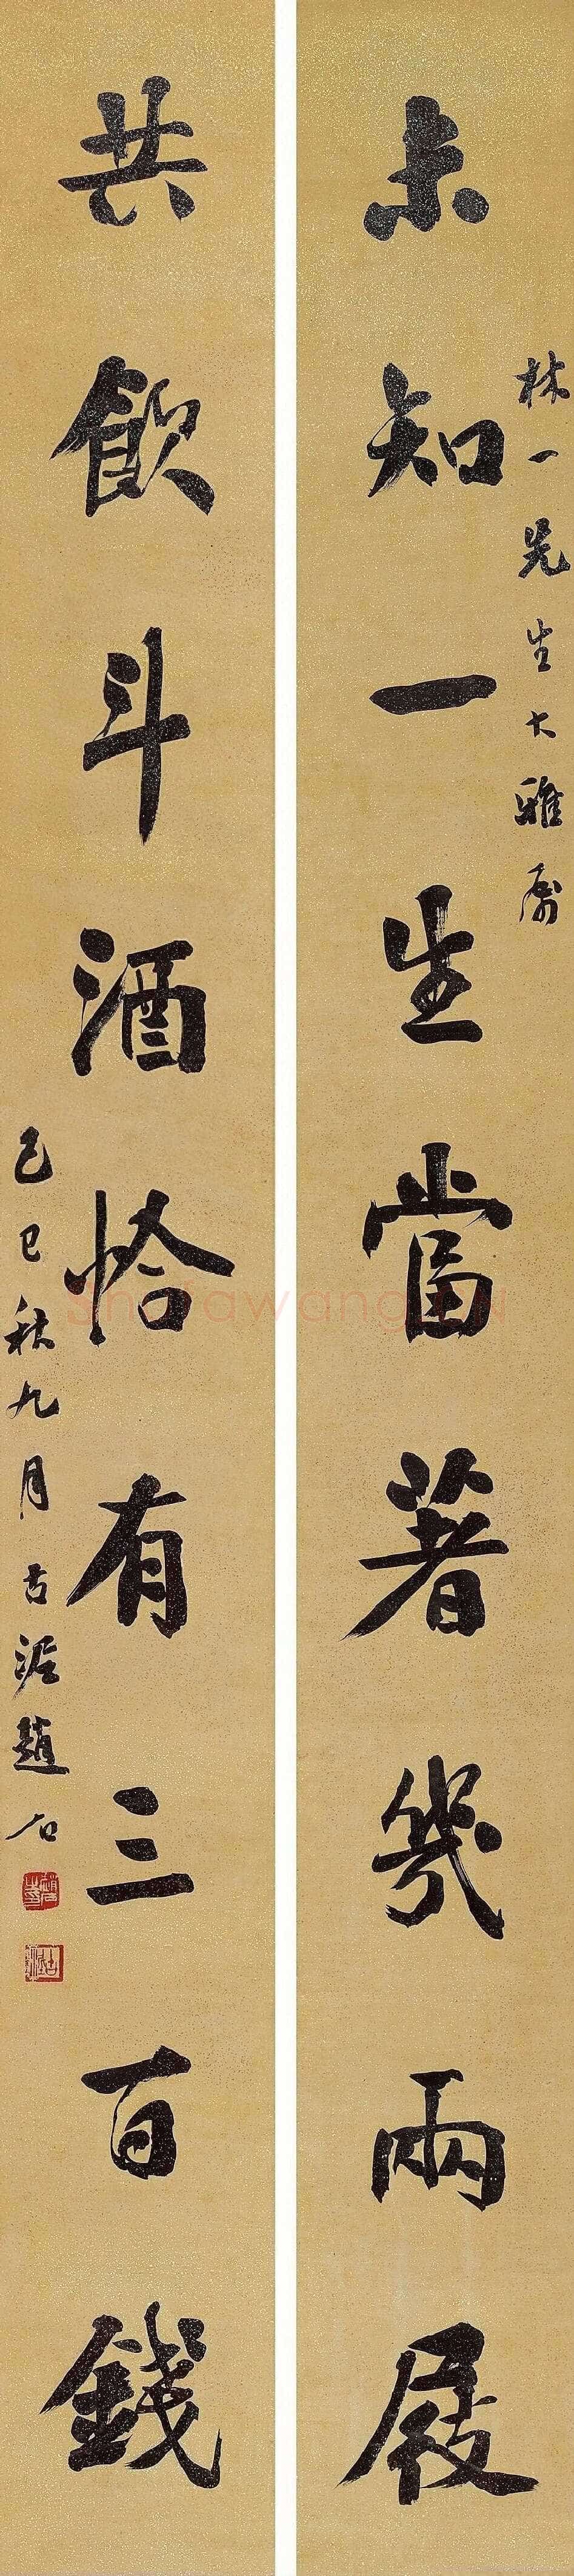 林一先生大雅属
未知一生當著幾兩屐
共飲斗酒恰有三百錢
己巳秋九月古泥趙石
Shufawang.CN